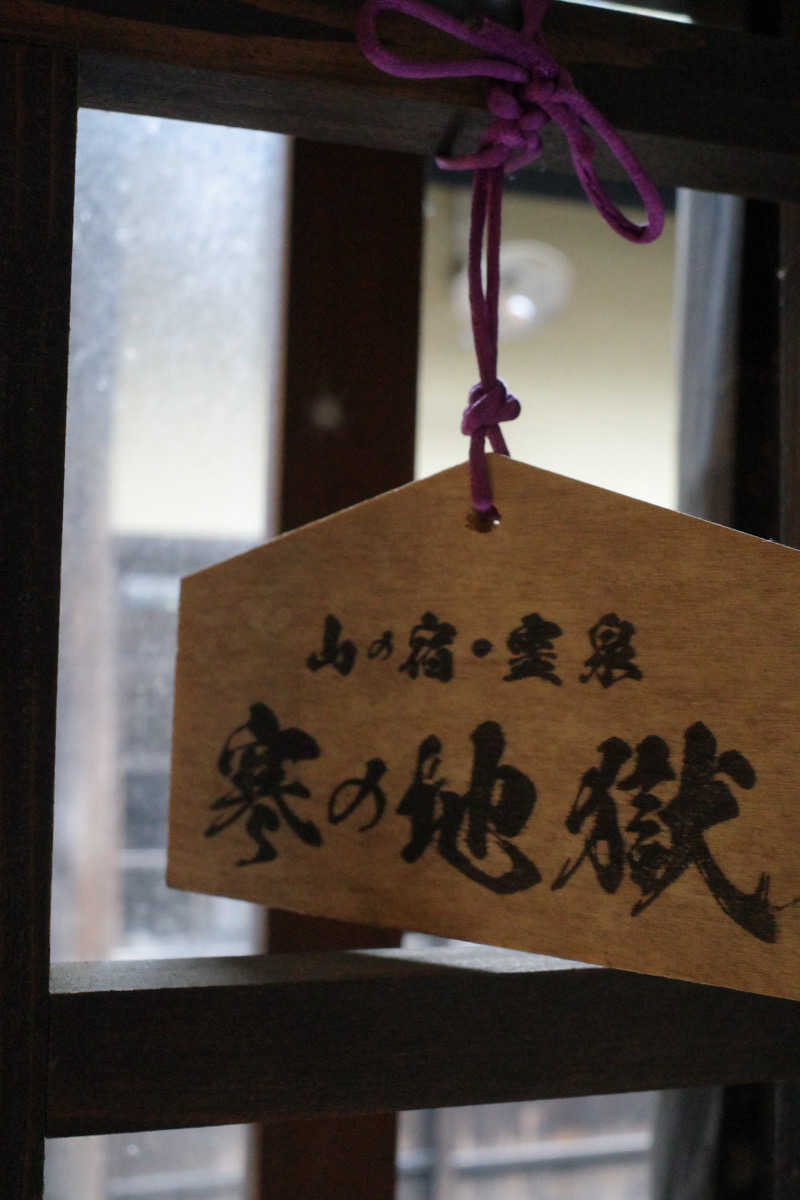 山の宿・霊泉
寒の地獄